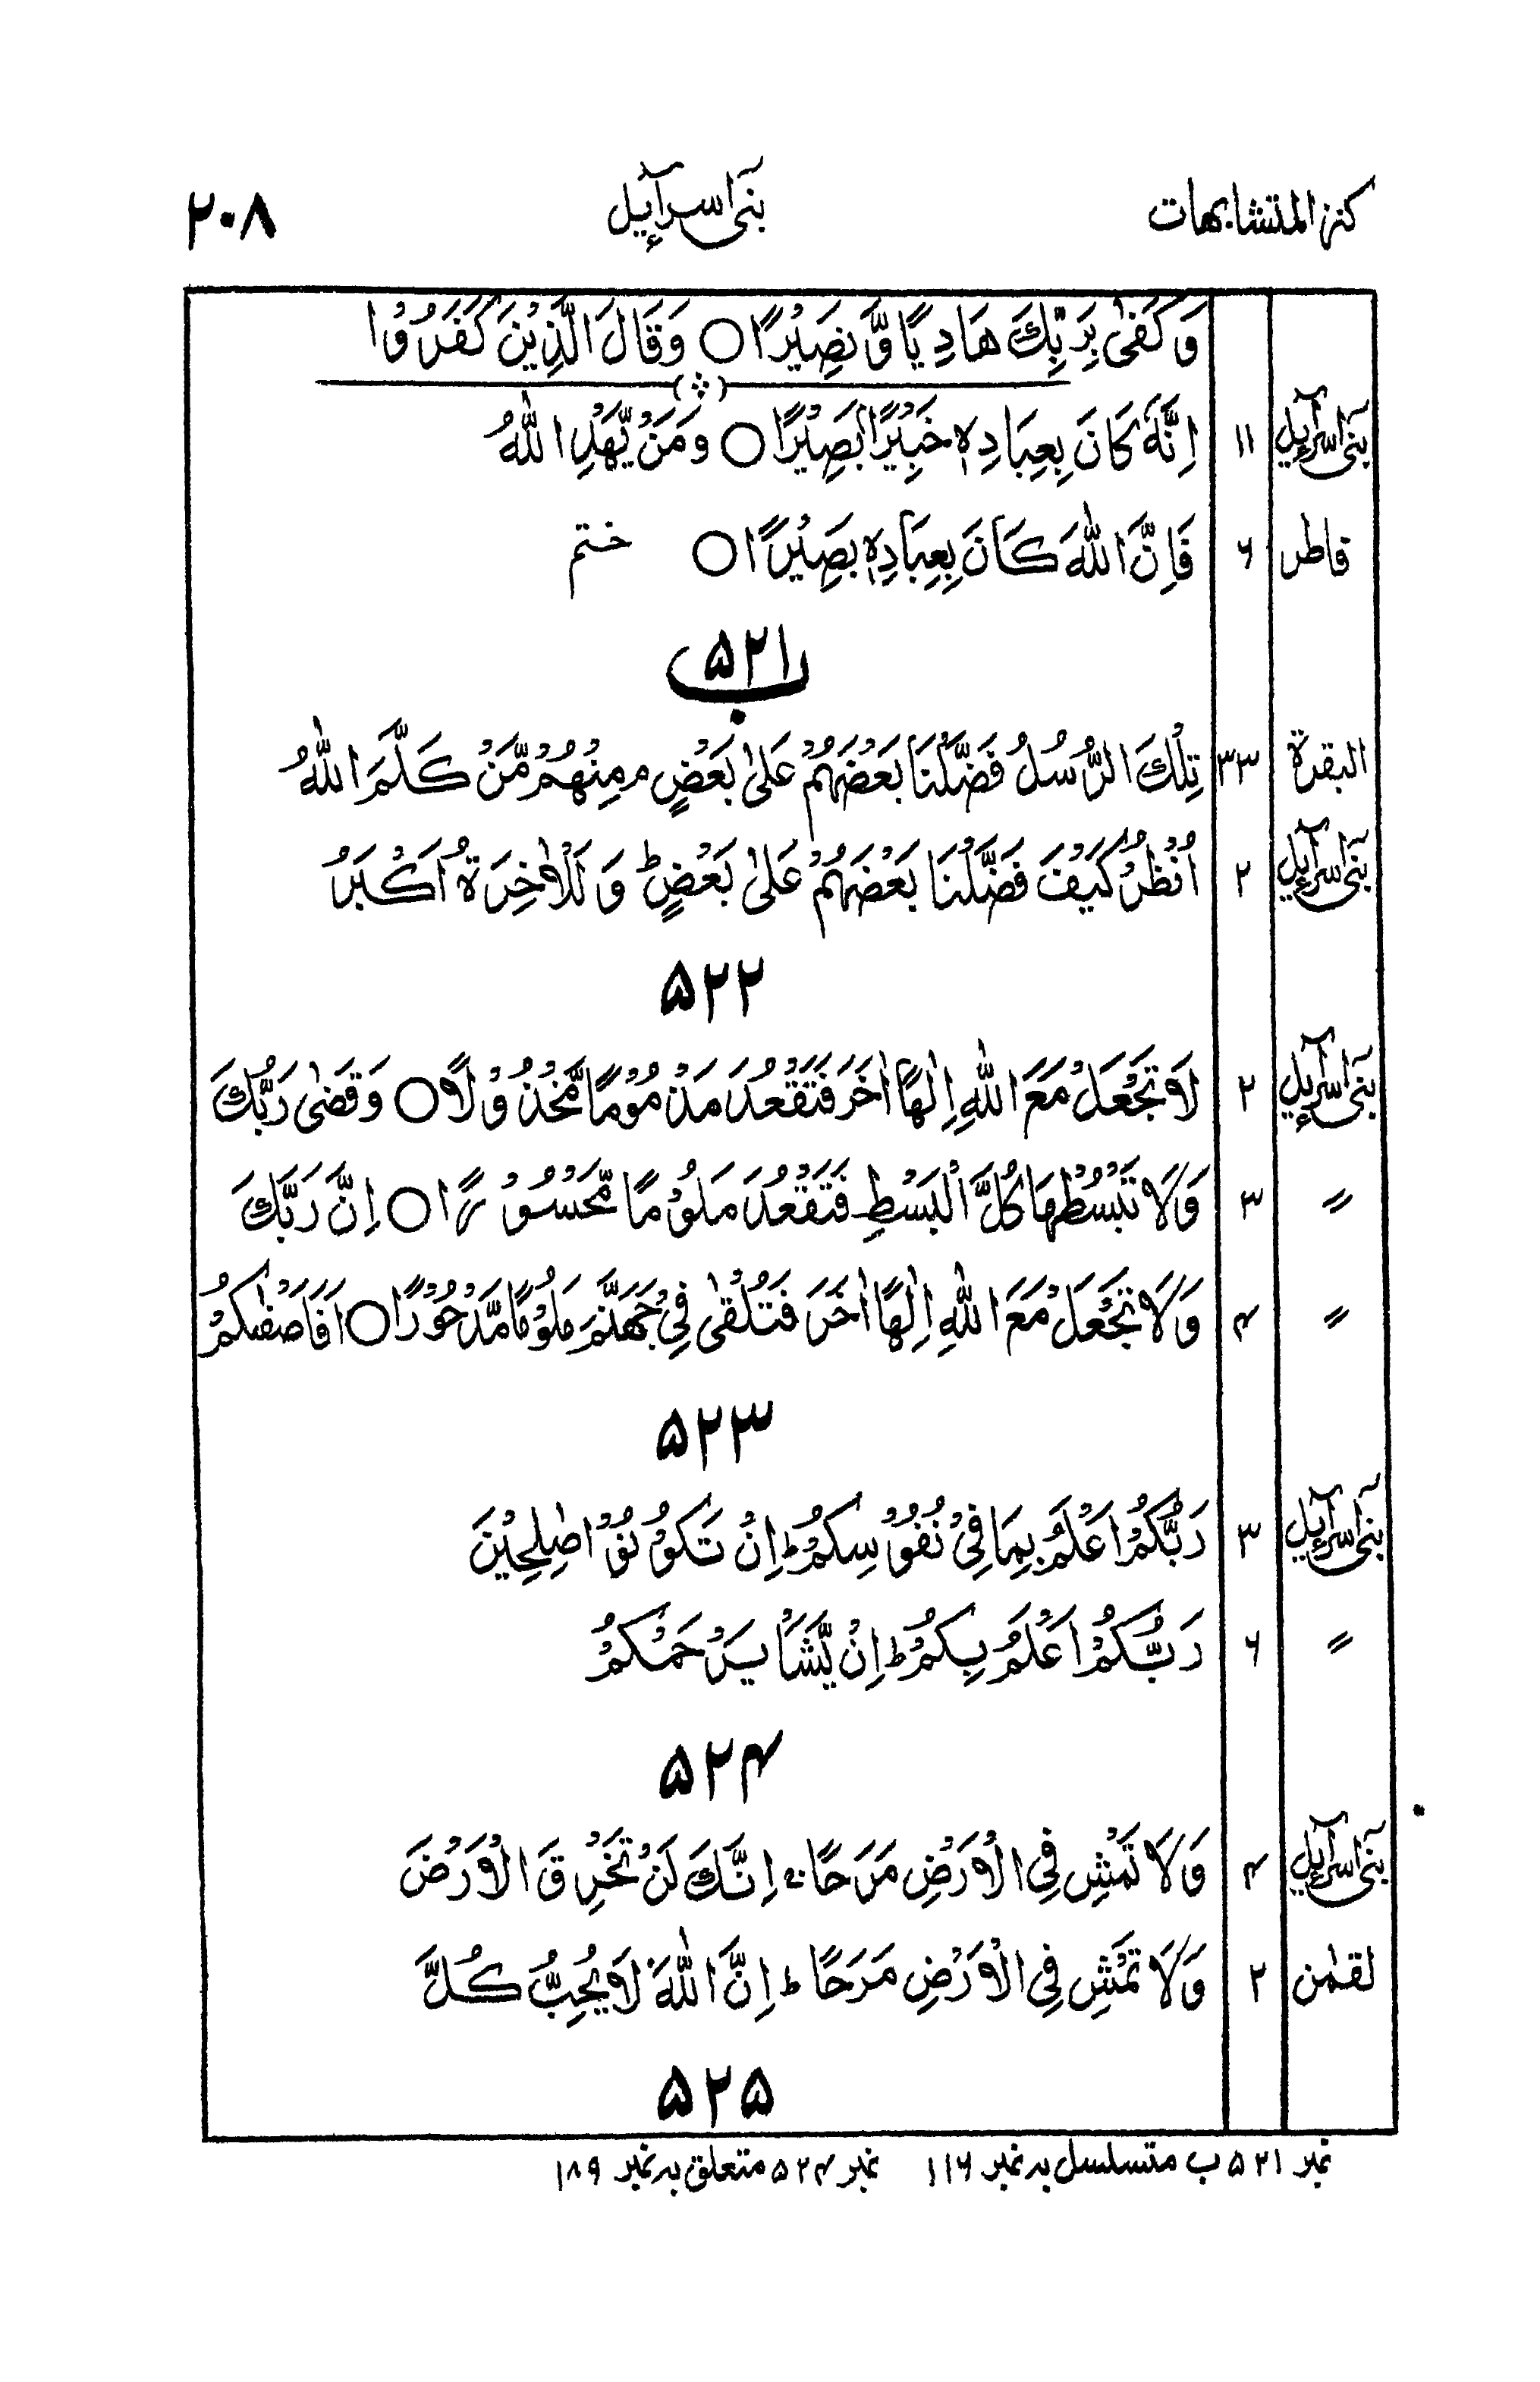 کنز المتشابہات بنی اسرآءیل ۲۰۸
وَكَفٰى بِرَبِّكَ هَادِيًا وَّنَصِيْرًا ○ وَقَالَ الَّذِيْنَ كَفَرُوْا
بنی اسرآءیل ۱۱ اِنَّهٗ كَانَ بِعِبَادِهٖ خَبِيْرًۢا بَصِيْرًا ○ وَمَنْ يَّهْدِ اللّٰهُ
فاطر ۶ فَاِنَّ اللّٰهَ كَانَ بِعِبَادِهٖ بَصِيْرًا ○ ختم
۵۲۱ ب
البقرة ۳۳ تِلْكَ الرُّسُلُ فَضَّلْنَا بَعْضَهُمْ عَلٰى بَعْضٍ ۘ مِنْهُمْ مَّنْ كَلَّمَ اللّٰهُ
بنی اسرآءیل ۲ اُنْظُرْ كَيْفَ فَضَّلْنَا بَعْضَهُمْ عَلٰى بَعْضٍ ؕ وَلَلْاٰخِرَةُ اَكْبَرُ
۵۲۲
بنی اسرآءیل ۲ لَا تَجْعَلْ مَعَ اللّٰهِ اِلٰهًا اٰخَرَ فَتَقْعُدَ مَذْمُوْمًا مَّخْذُوْلًا ○ وَقَضٰى رَبُّكَ
〃 ۳ وَلَا تَبْسُطْهَا كُلَّ الْبَسْطِ فَتَقْعُدَ مَلُوْمًا مَّحْسُوْرًا ○ اِنَّ رَبَّكَ
〃 ۴ وَلَا تَجْعَلْ مَعَ اللّٰهِ اِلٰهًا اٰخَرَ فَتُلْقٰى فِيْ جَهَنَّمَ مَلُوْمًا مَّدْحُوْرًا ○ اَفَاَصْفٰىكُمْ
۵۲۳
بنی اسرآءیل ۳ رَبُّكُمْ اَعْلَمُ بِمَا فِيْ نُفُوْسِكُمْ ؕ اِنْ تَكُوْنُوْا صٰلِحِيْنَ
〃 ۶ رَبُّكُمْ اَعْلَمُ بِكُمْ ؕ اِنْ يَّشَاْ يَرْحَمْكُمْ
۵۲۴
بنی اسرآءیل ۴ وَلَا تَمْشِ فِي الْاَرْضِ مَرَحًا ۚ اِنَّكَ لَنْ تَخْرِقَ الْاَرْضَ
لقمٰن ۲ وَلَا تَمْشِ فِي الْاَرْضِ مَرَحًا ؕ اِنَّ اللّٰهَ لَا يُحِبُّ كُلَّ
۵۲۵
نمبر ۵۲۱ ب متسلسل بہ نمبر ۱۱۶ نمبر ۵۲۴ متعلق بہ نمبر ۱۸۹